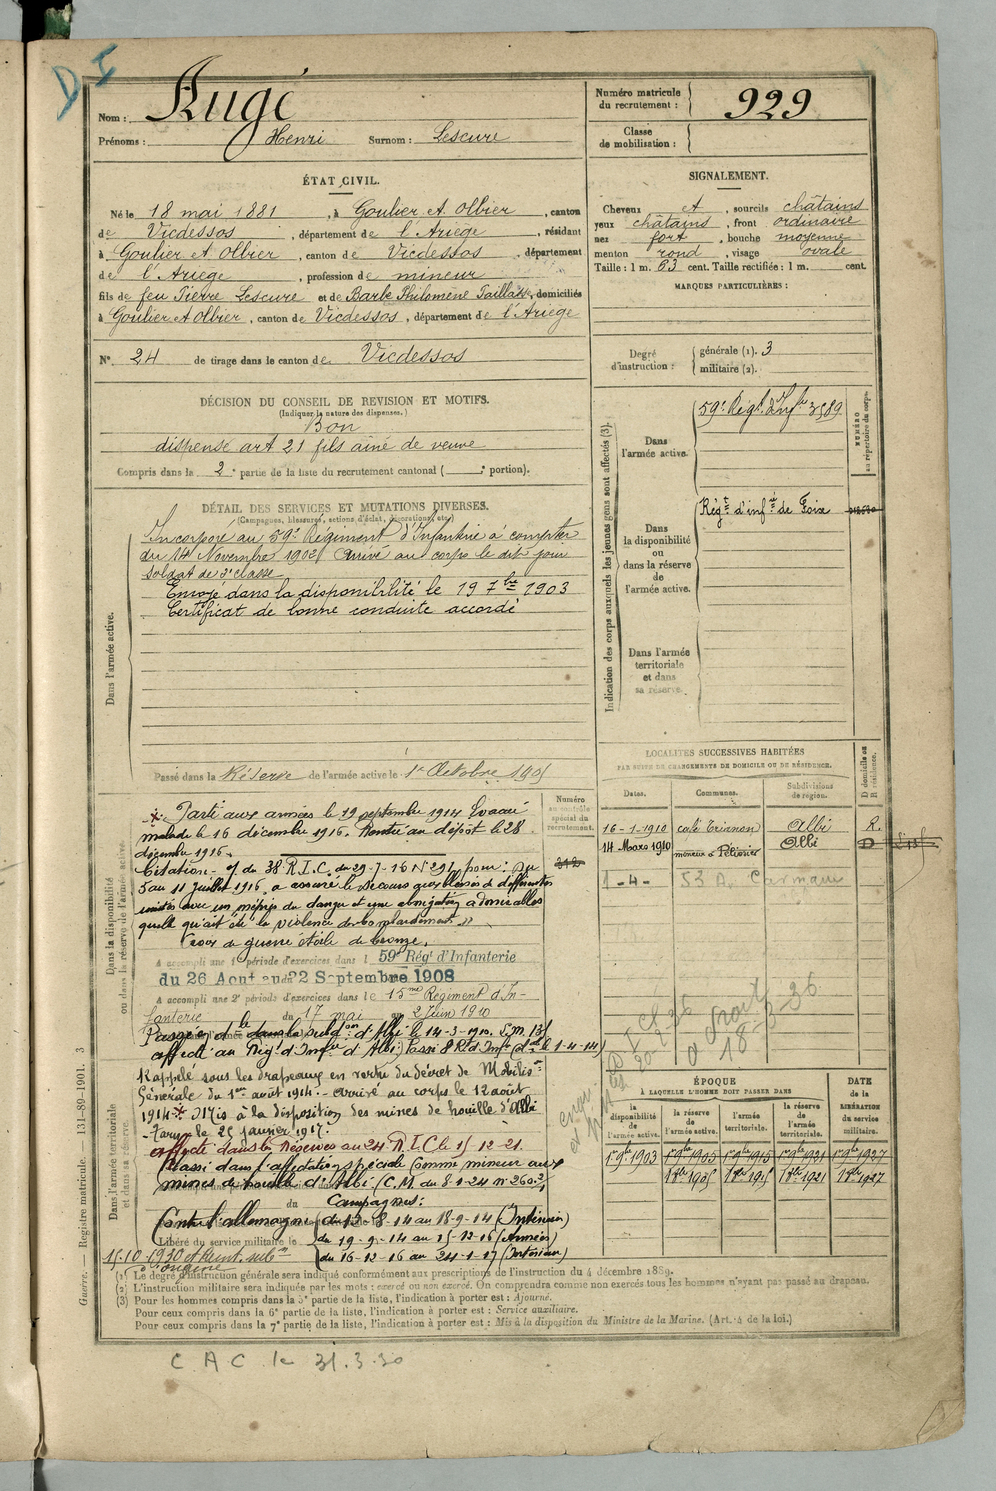 D I
Nom : Augé
Prénoms : Henri Surnom : Lescure
Numéro matricule du recrutement : 929
Classe de mobilisation :
ÉTAT CIVIL.
Né le 18 mai 1881, à Goulier et Olbier, canton
de Vicdessos, département de l'Ariège, résidant
à Goulier et Olbier, canton de Vicdessos, département
de l'Ariège, profession de mineur
fils de feu Pierre Lescure et de Barbe Philomène Taillas, domiciliés
à Goulier et Olbier, canton de Vicdessos, département de l'Ariège
N° 24 de tirage dans le canton de Vicdessos
SIGNALEMENT.
Cheveux et, sourcils châtains
yeux châtains, front ordinaire
nez fort, bouche moyenne
menton rond, visage ovale
Taille : 1 m. 63 cent. Taille rectifiée : 1 m. cent.
MARQUES PARTICULIÈRES :
Degré d'instruction : générale (1). 3
militaire (2).
DÉCISION DU CONSEIL DE REVISION ET MOTIFS.
(Indiquer la nature des dispenses.)
Bon
dispensé art 21 fils aîné de veuve
Compris dans la 2e partie de la liste du recrutement cantonal ( e portion).
DÉTAIL DES SERVICES ET MUTATIONS DIVERSES.
(Campagnes, blessures, actions d'éclat, décorations, etc.)
Dans l'armée active.
Incorporé au 59e Régiment d'Infanterie à compter
du 14 Novembre 1902 Arrivé au corps le dit jour
Soldat de 2e classe
Envoyé dans la disponibilité le 19 7bre 1903
Certificat de bonne conduite accordé
Passé dans la Réserve de l'armée active le 1er Octobre 1905
Indication des corps auxquels les jeunes gens sont affectés (3).
NUMÉRO au répertoire du corps.
Dans l'armée active.
59e Régt d'Infrie 3589
Dans la disponibilité ou dans la réserve de l'armée active.
Régt d'infrie de Foix
Dans l'armée territoriale et dans sa réserve.
LOCALITÉS SUCCESSIVES HABITÉES
PAR SUITE DE CHANGEMENTS DE DOMICILE OU DE RÉSIDENCE.
Dates. Communes. Subdivisions de région. D domicile ou R résidence.
16-1-1910 café Trianon Albi R.
14 Mars 1910 mineur à Pélissier Albi D
1-4- 53 A. Carmaux
Dans la disponibilité ou dans la réserve de l'armée active.
Numéro au contrôle spécial du recrutement.
Parti aux armées le 19 septembre 1914 Evacué
malade le 16 décembre 1916. Rentré au dépôt le 28
décembre 1916.
Citation - O/ du 38 R.I.C. du 29-7-16 N° 291 pour : Du
5 au 11 Juillet 1916, a assuré le secours aux blessés de différentes
unités avec un mépris du danger et une abnégation admirables
quelle qu'ait été la violence du bombardement »
Croix de guerre étoile de bronze.
A accompli une 1e période d'exercices dans le 59e Régt d'Infanterie
du 26 Aout au 22 Septembre 1908
A accompli une 2e période d'exercices dans le 15me Régiment d'In-
fanterie du 17 mai au 2 Juin 1910
Passé dans la subdon d'Albi le 14-3-1910.
affecté au Régt d'Infrie d'Albi
Dans l'armée territoriale et dans sa réserve.
Rappelé sous les drapeaux en vertu du décret de Mobilison
Générale du 1er août 1914 - arrivé au corps le 12 août
1914 Mis à la disposition des mines de houille d'Albi
- Tarn - le 25 janvier 1917.
affecté dans les Réserves au 24 R.I.C le 15-12-21.
Classé dans l'affectation spéciale Comme mineur aux
mines de houille d'Albi (C.M. du 8-1-24 n° 260.2)
Campagnes :
Contre l'allemagne (du 12-8-14 au 18-9-14 (Intérieur)
Libéré du service militaire le (du 19-9-14 au 15-12-16 (Armées)
(du 16-12-16 au 24-1-17 (Intérieur)
ÉPOQUE
À LAQUELLE L'HOMME DOIT PASSER DANS
DATE de la LIBÉRATION du service militaire.
la disponibilité de l'armée active. la réserve de l'armée active. l'armée territoriale. la réserve de l'armée territoriale.
1er 9bre 1903 1er 9bre 1905 1er 9bre 1915 1er 9bre 1921 1er 9bre 1927
1er 8bre 1905 1er 8bre 1915 1er 8bre 1921 1er 8bre 1927
(1) Le degré d'instruction générale sera indiqué conformément aux prescriptions de l'instruction du 4 décembre 1889.
(2) L'instruction militaire sera indiquée par les mots : exercé ou non exercé. On comprendra comme non exercés tous les hommes n'ayant pas passé au drapeau.
(3) Pour les hommes compris dans la 5e partie de la liste, l'indication à porter est : Ajourné.
Pour ceux compris dans la 6e partie de la liste, l'indication à porter est : Service auxiliaire.
Pour ceux compris dans la 7e partie de la liste, l'indication à porter est : Mis à la disposition du Ministre de la Marine. (Art. 4 de la loi.)
Guerre. — Registre matricule. — 131-89-1901. 3
C.A.C. le 31.3.30